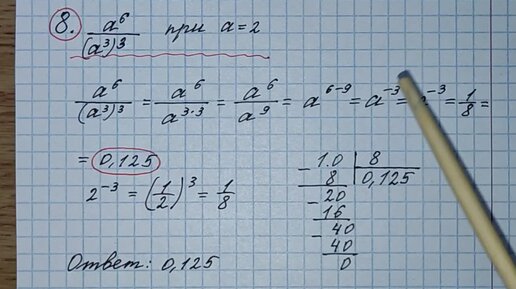 8. a⁶/(a³)³ при a=2
a⁶/(a³)³ = a⁶/a³·³ = a⁶/a⁹ = a⁶⁻⁹ = a⁻³ = ⁻³ = 1/8 =
= 0,125
2⁻³ = (1/2)³ = 1/8
- 1.0 | 8
8 | 0,125
- 20
16
- 40
40
0
Ответ: 0,125